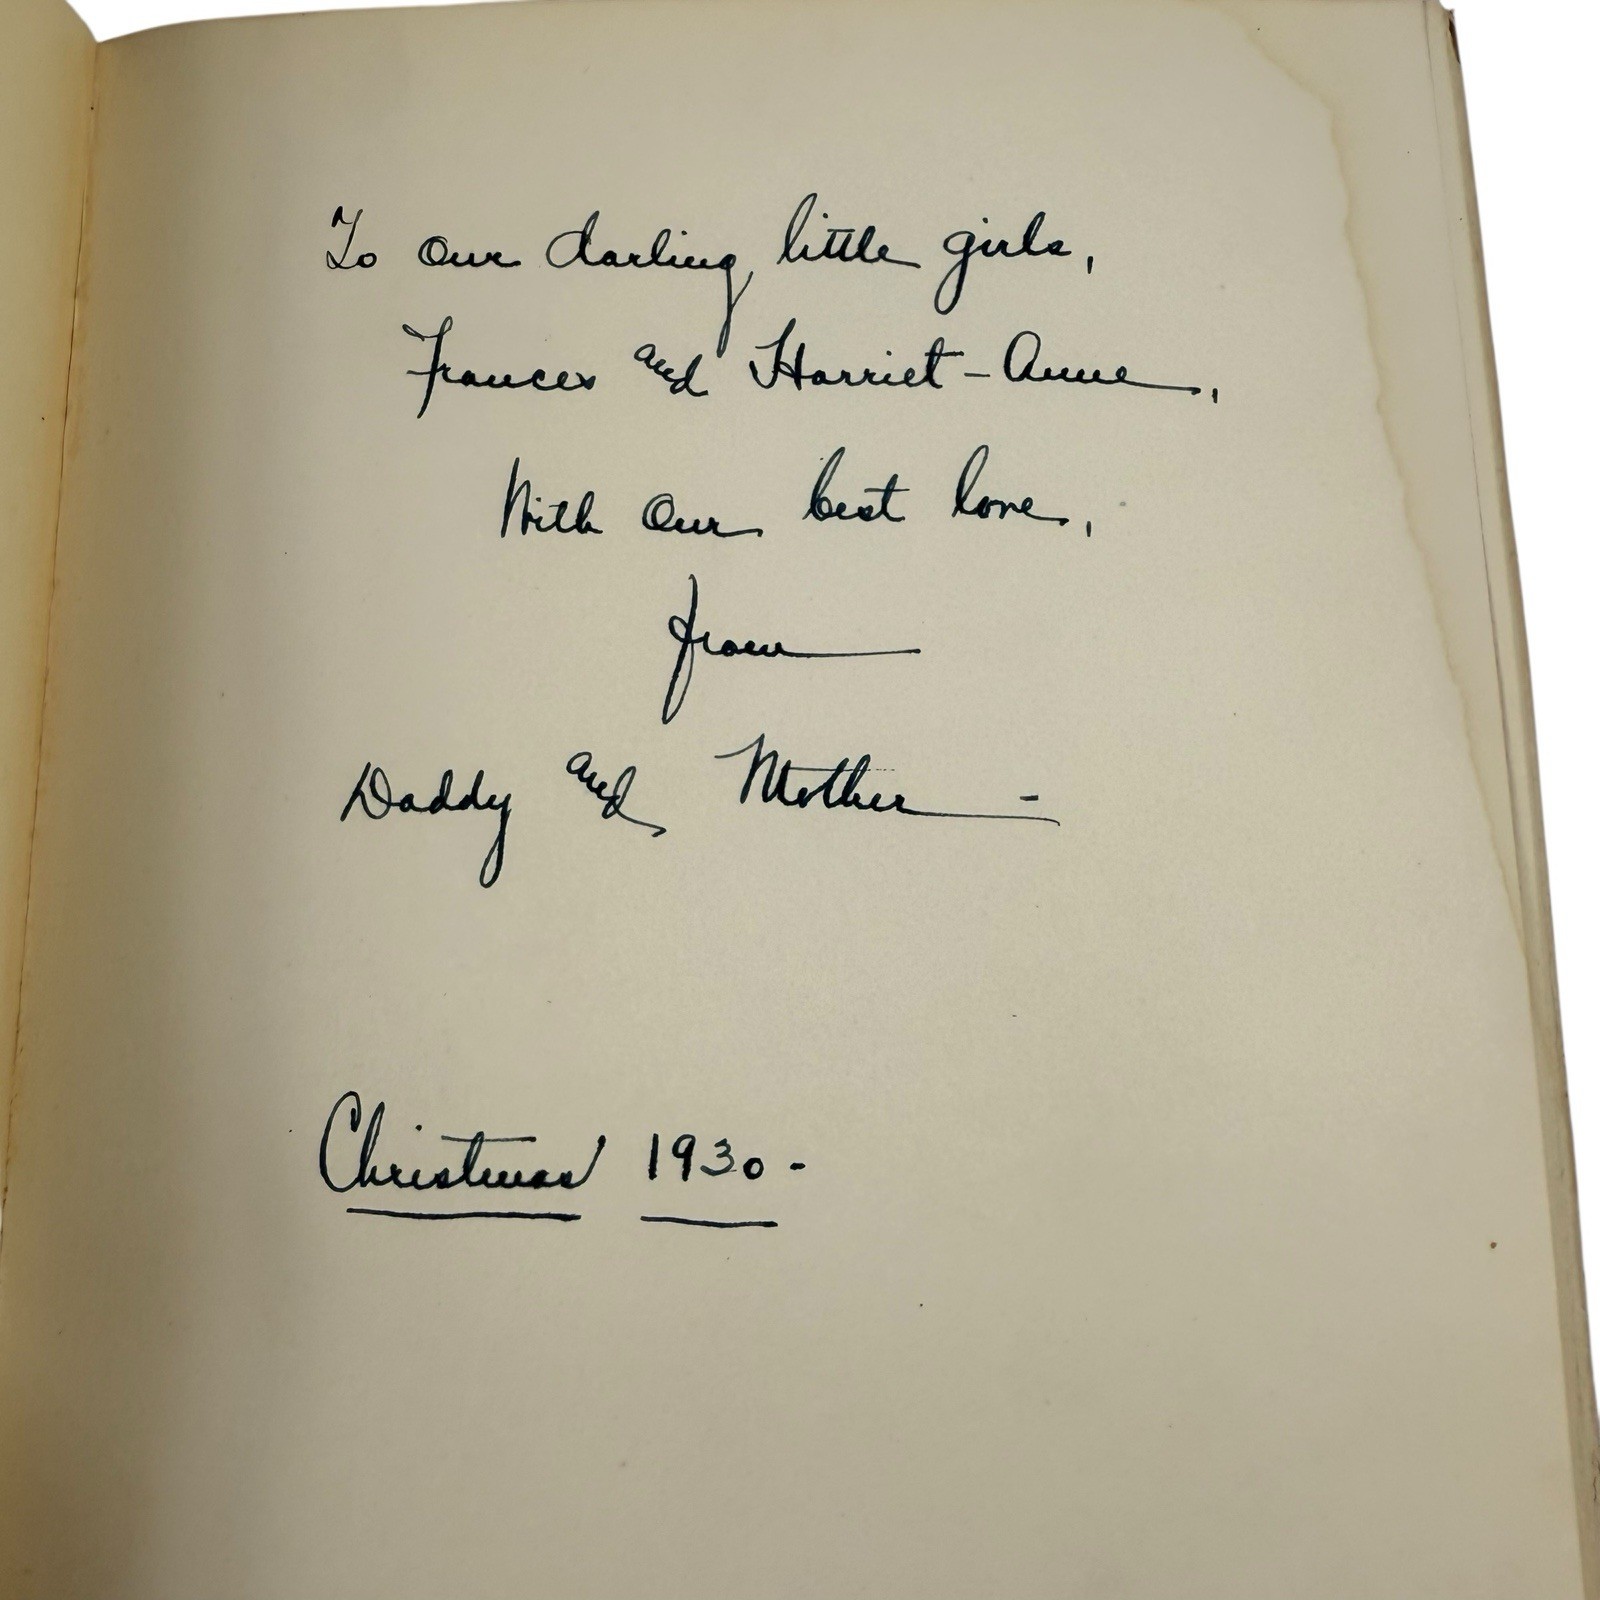 To our darling little girls,
Frances and Harriet-Anne,
With our best love,
from
Daddy and Mother -
Christmas 1930-